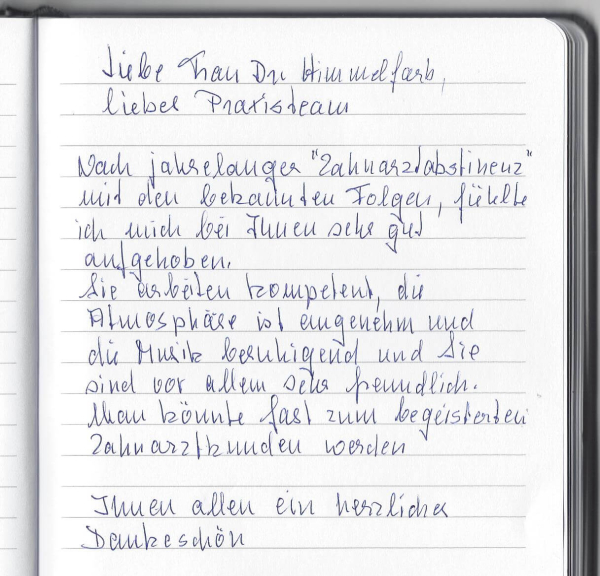 Liebe Frau Dr. Himmelfarb,
liebes Praxisteam
Nach jahrelanger "Zahnarztabstinenz"
mit den bekannten Folgen, fühlte
ich mich bei Ihnen sehr gut
aufgehoben.
Sie arbeiten kompetent, die
Atmosphäre ist angenehm und
die Musik beruhigend und Sie
sind vor allem sehr freundlich.
Man könnte fast zum begeisterten
Zahnarztkunden werden
Ihnen allen ein herzliches
Dankeschön